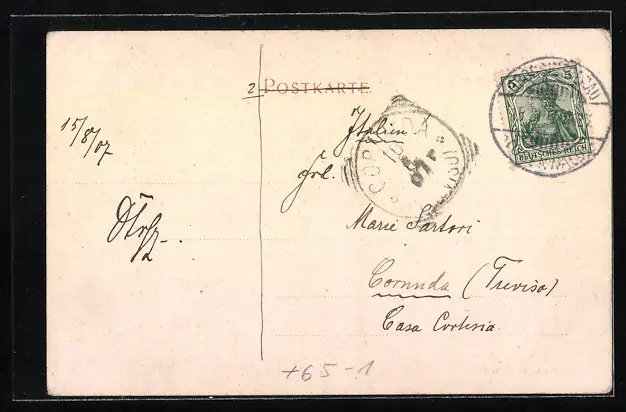 2 POSTKARTE
15/8/07
Italien
Frl.
Marie Sartori
Cornuda (Treviso)
Casa Cortesia
CORNUDA
5 5
DEUTSCHES REICH
+65-1